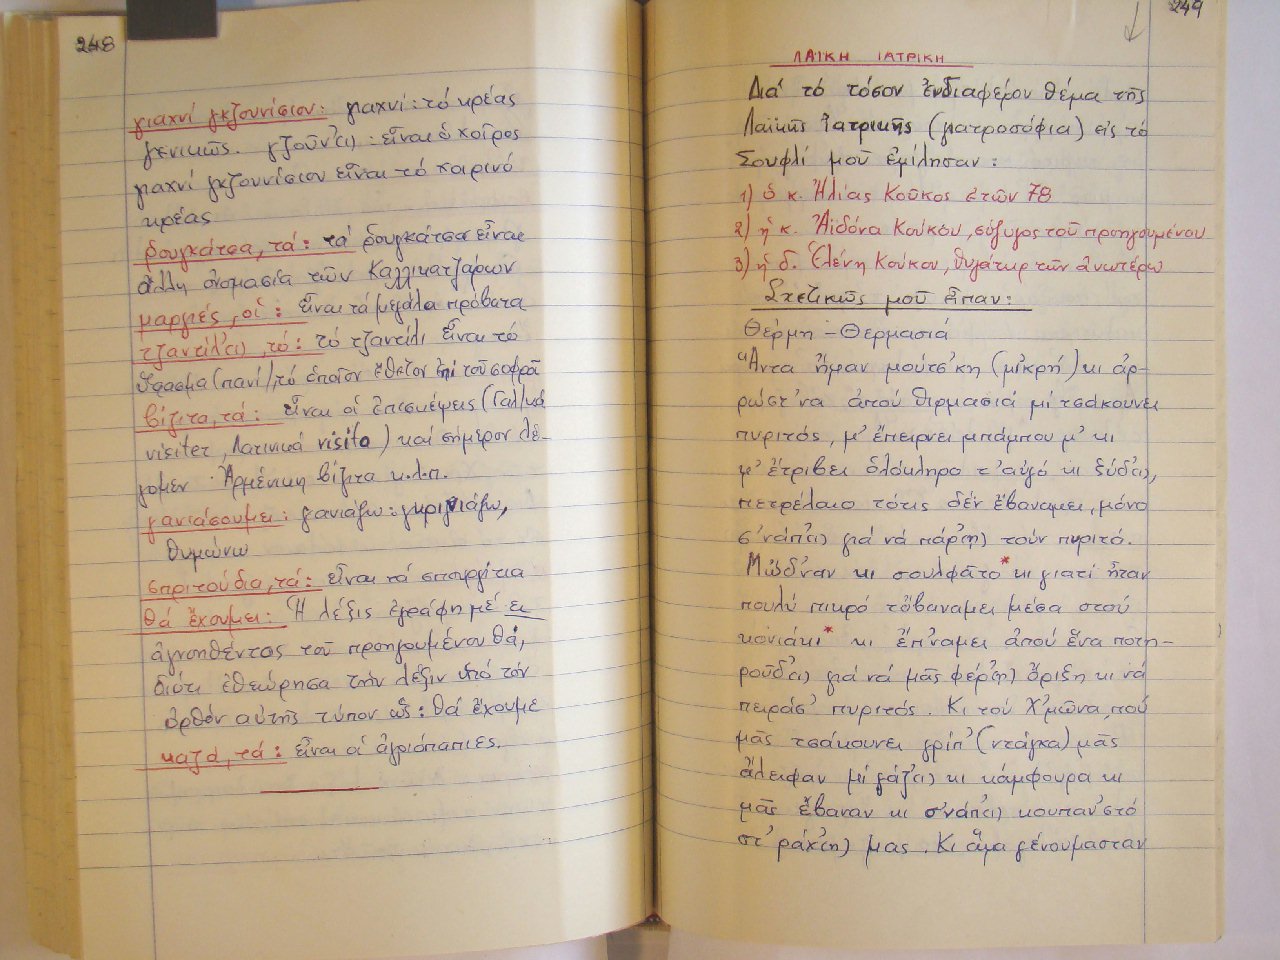 248
γιαχνί γκζουνίσιον: γιαχνί: τό κρέας
γενικῶς. γζοῦν'(ι): εἶναι ὁ χοῖρος
γιαχνί γκζουνίσιον εἶναι τό χοιρινό
κρέας
ρουγκάτσα, τά: τά ρουγκάτσα εἶναι
ἄλλη ὀνομασία τῶν Καλλικατζάρων
μαργιές, οἱ: εἶναι τά μεγάλα πρόβατα
τζαντίλ'(ι), τό: τό τζαντίλι εἶναι τό
ὕφασμα (πανί), τό ὁποῖον ἔθετον ἐπί τοῦ σοφρᾶ
βίζιτα, τά: εἶναι οἱ ἐπισκέψεις (Γαλ/κά
visiter, Λατινικά visito) καί σήμερον λέ-
γομεν Ἀρμένικη βίζιτα κ.λ.π.
γανιάσουμει: γανιάζω: γκρινιάζω,
θυμώνω
σπριτούδια, τά: εἶναι τά σπυργίτια
θά ἔχουμει: Ἡ λέξις ἐγράφη μέ ει
ἀγνοηθέντος τοῦ προηγουμένου θά,
διότι ἐθεώρησα τήν λέξιν ὑπό τόν
ὀρθόν αὐτῆς τύπον ὡς: θά ἔχουμε
καζά, τά: εἶναι οἱ ἀγριόπαπιες.
249
ΛΑΪΚΗ ΙΑΤΡΙΚΗ
Διά τό τόσον ἐνδιαφέρον θέμα τῆς
Λαϊκῆς Ἰατρικῆς (γιατροσόφια) εἰς τό
Σουφλί μοῦ ἐμίλησαν:
1) ὁ κ. Ἠλίας Κοῦκος ἐτῶν 78
2) ἡ κ. Ἀϊδόνα Κούκου, σύζυγος τοῦ προηγουμένου
3) ἡ δ. Ἑλένη Κούκου, θυγάτηρ τῶν ἀνωτέρω
Σχετικῶς μοῦ εἶπαν:
Θέρμη - Θερμασιά
"Ἄντα ἤμαν μούτσ'κη (μικρή) κι ἀρ-
ρώστ'να ἀπού θιρμασιά μί τσάκουνει
πυριτός, μ' ἔπειρνει μπάμπου μ' κι
μ' ἔτριβει ὁλόκληρο τ' αὐγό κι ξύδ'(ι),
πετρέλαιο τότις δέν ἔβαναμει, μόνο
σ'νάπ'(ι) γιά νά πάρ'(η) τούν πυριτό.
Μῶδ'ναν κι σουλφᾶτο* κι γιατί ἦταν
πουλύ πικρό τὄβαναμει μέσα στού
κονιάκι* κι ἔπ'ναμει ἀπού ἕνα ποτη-
ροῦδ'(ι) γιά νά μᾶς φέρ'(η) ὄριξη κι νά
πειράσ' πυριτός. Κι τού Χ'μῶνα, πού
μᾶς τσάκουνει γρίπ' (ντάγκα) μᾶς
ἄλειφαν μί γάζ'(ι) κι κάμφουρα κι
μᾶς ἔβαναν κι σ'νάπ'(ι) κουπαν'στό
στ' ράχ'(η) μας. Κι ἅμα γένουμασταν